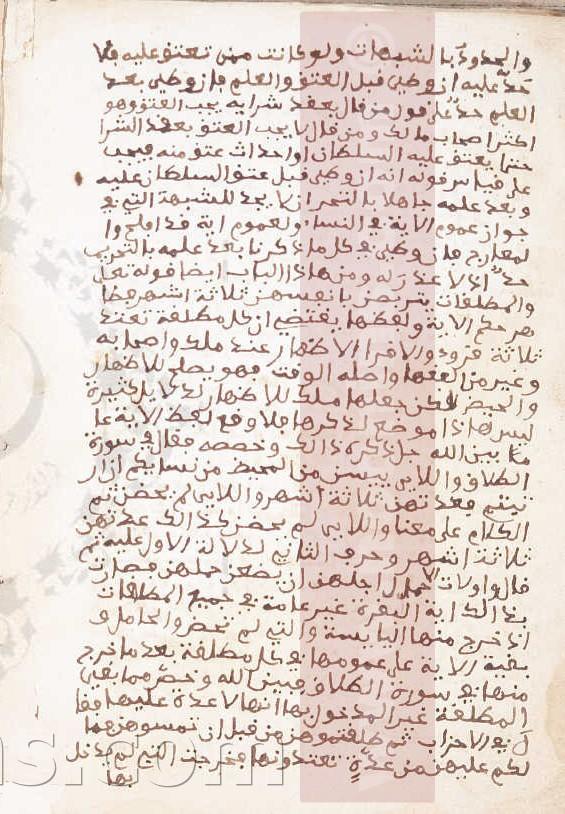 والحدود بالشبهات ولو كانت ممن تعتق عليه فلا
حد عليه ان وطئ قبل العتق والعلم فان وطئ بعد
العلم حد على قول من قال بعقد شرايه يجب العتق وهو
اكثر اصحاب مالك ومن قال لا يجب العتق بعقد الشرا
حتى يعتق عليه السلطان او احداث عتق منه فيجب
على قياس قوله انه ان وطئ قبل عتق السلطان عليه
وبعد علمه جاهلا بالتحر ان لا يحد للشبهة التي في
جواز عموم الاية في النسا ولعموم اية قد افلح وا
لمعارج فان وطئ في كل ما ذكرنا بعد علمه بالتحريم
حد اذ لا عذر له ومن هاذا الباب ايضا قوله تعلى
والمطلقات يتربصن بانفسهن ثلاثة اشهر فظا
هر حكم الاية ولفظها يقتضي ان كل مطلقة تعتد
ثلاثة قروء والاقرا الاطهار عند ملك واصحابه
وغير من الفقها واصله الوقت فهو يصلح للاطهار
والحيض لكن جعلها ملك للاطهار لدلايل كثيرة
ليس هاذا موضع لذكرها فلا وقع لفظ الاية عا
ما بين الله جل ذكره ذالك وخصصه فقال في سورة
الطلاق واللايى ييسن من المحيض من نسايكم ان ار
تبتم فعدتهن ثلاثة اشهر واللايى لم يحضن تم
الكلام على معنا واللايى لم يحضن كذالك عدتهن
ثلاثة اشهر وحرف الثاني لدلالة الاول عليه ثم
قال واولات الاحمال اجلهن ان يضعن حملهن فصارت
بذالك اية البقرة غير عامة في جميع المطلقات
اذ خرج منها اليايسة والتي لم تحض والحامل و
بقية الاية على عمومها في كل مطلقة بعد ما خرج
منها في سورة الطلاق فبين الله وخص مما بقي
المطلقة غير المدخول بها انها لا عدة عليها فقا
ل في الاحزاب ثم طلقتموهن من قبل ان تمسوهن فما
لكم عليهن من عدة تعتدونها فخرجت التي لم يدخل
بها
s.com